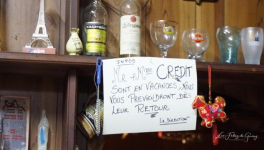 INFOS
Mr & Mme CREDIT
SONT EN VACANCES, NOUS
VOUS PREVIENDRONT DES
LEUR RETOUR
LA DIRECTION